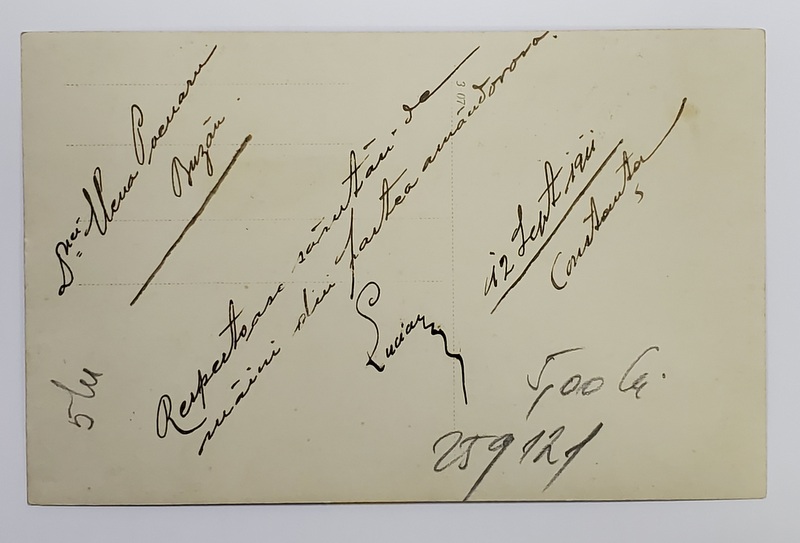 Dnei Elena Poenaru
Buzău.
Respectoase sărutări de
mâini din partea amândorora.
Lucian
12 Sept 1911
Constanța
5 lei
5,00 lei.
259121